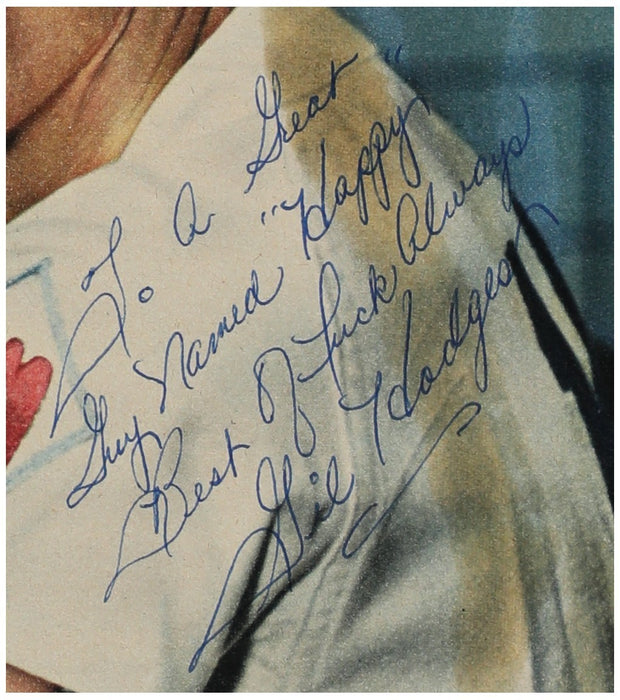 To A Great
Guy Named "Happy"
Best Of Luck Always
Gil Hodges